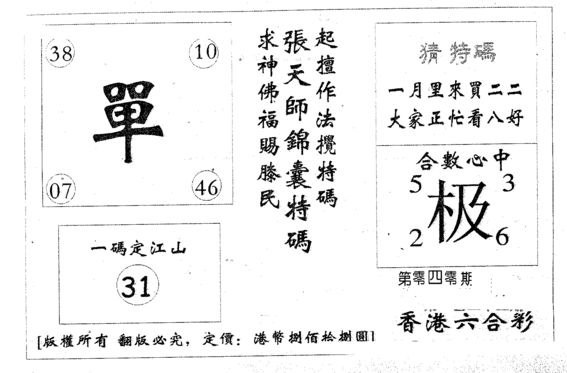 38
10
單
07
46
一碼定江山
31
起擅作法攪特碼
張天師錦囊特碼
求神佛福賜滕民
猜特碼
一月里來買二二
大家正忙看八好
合數心中
5
3
极
2
6
第零四零期
香港六合彩
[版權所有 翻版必究，定價：港幣捌佰拾捌圓]